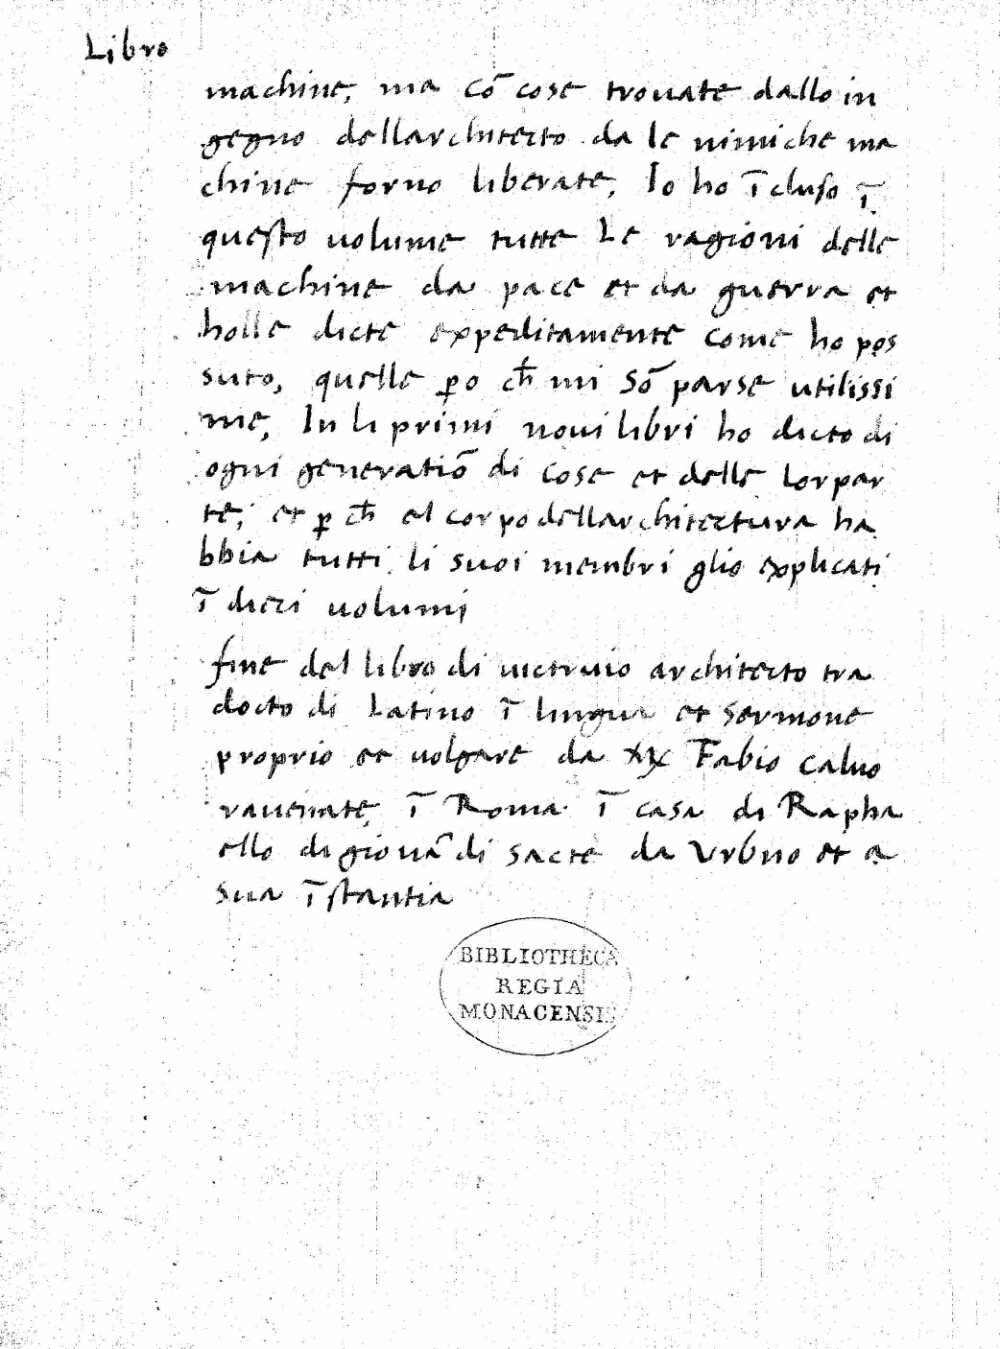 Libro
machine, ma cō cose trovate dallo in
gegno dellarchitecto da le nimiche ma
chine forno liberate, Io ho ī cluso ī
questo volume tutte Le ragioni delle
machine da pace et da guerra et
holle dicte expeditamente come ho pos
suto, quelle ꝑo ch̄ mi sō parse utilissi
me, In li primi novi libri ho dicto di
ogni generatiō di cose et delle lor par
te, et ꝑ ch̄ el corpo dellarchitectura ha
bbia tutti li suoi membri glio explicati
ī dieci volumi
fine del libro di victruvio architecto tra
docto di Latino ī lingua et sermone
proprio et volgare da Fabio Calvo
ravenate, ī Roma ī casa di Rapha
ello di giovā di sacte da Urbino et a
sua īstantia
BIBLIOTHECA
REGIA
MONACENSIS